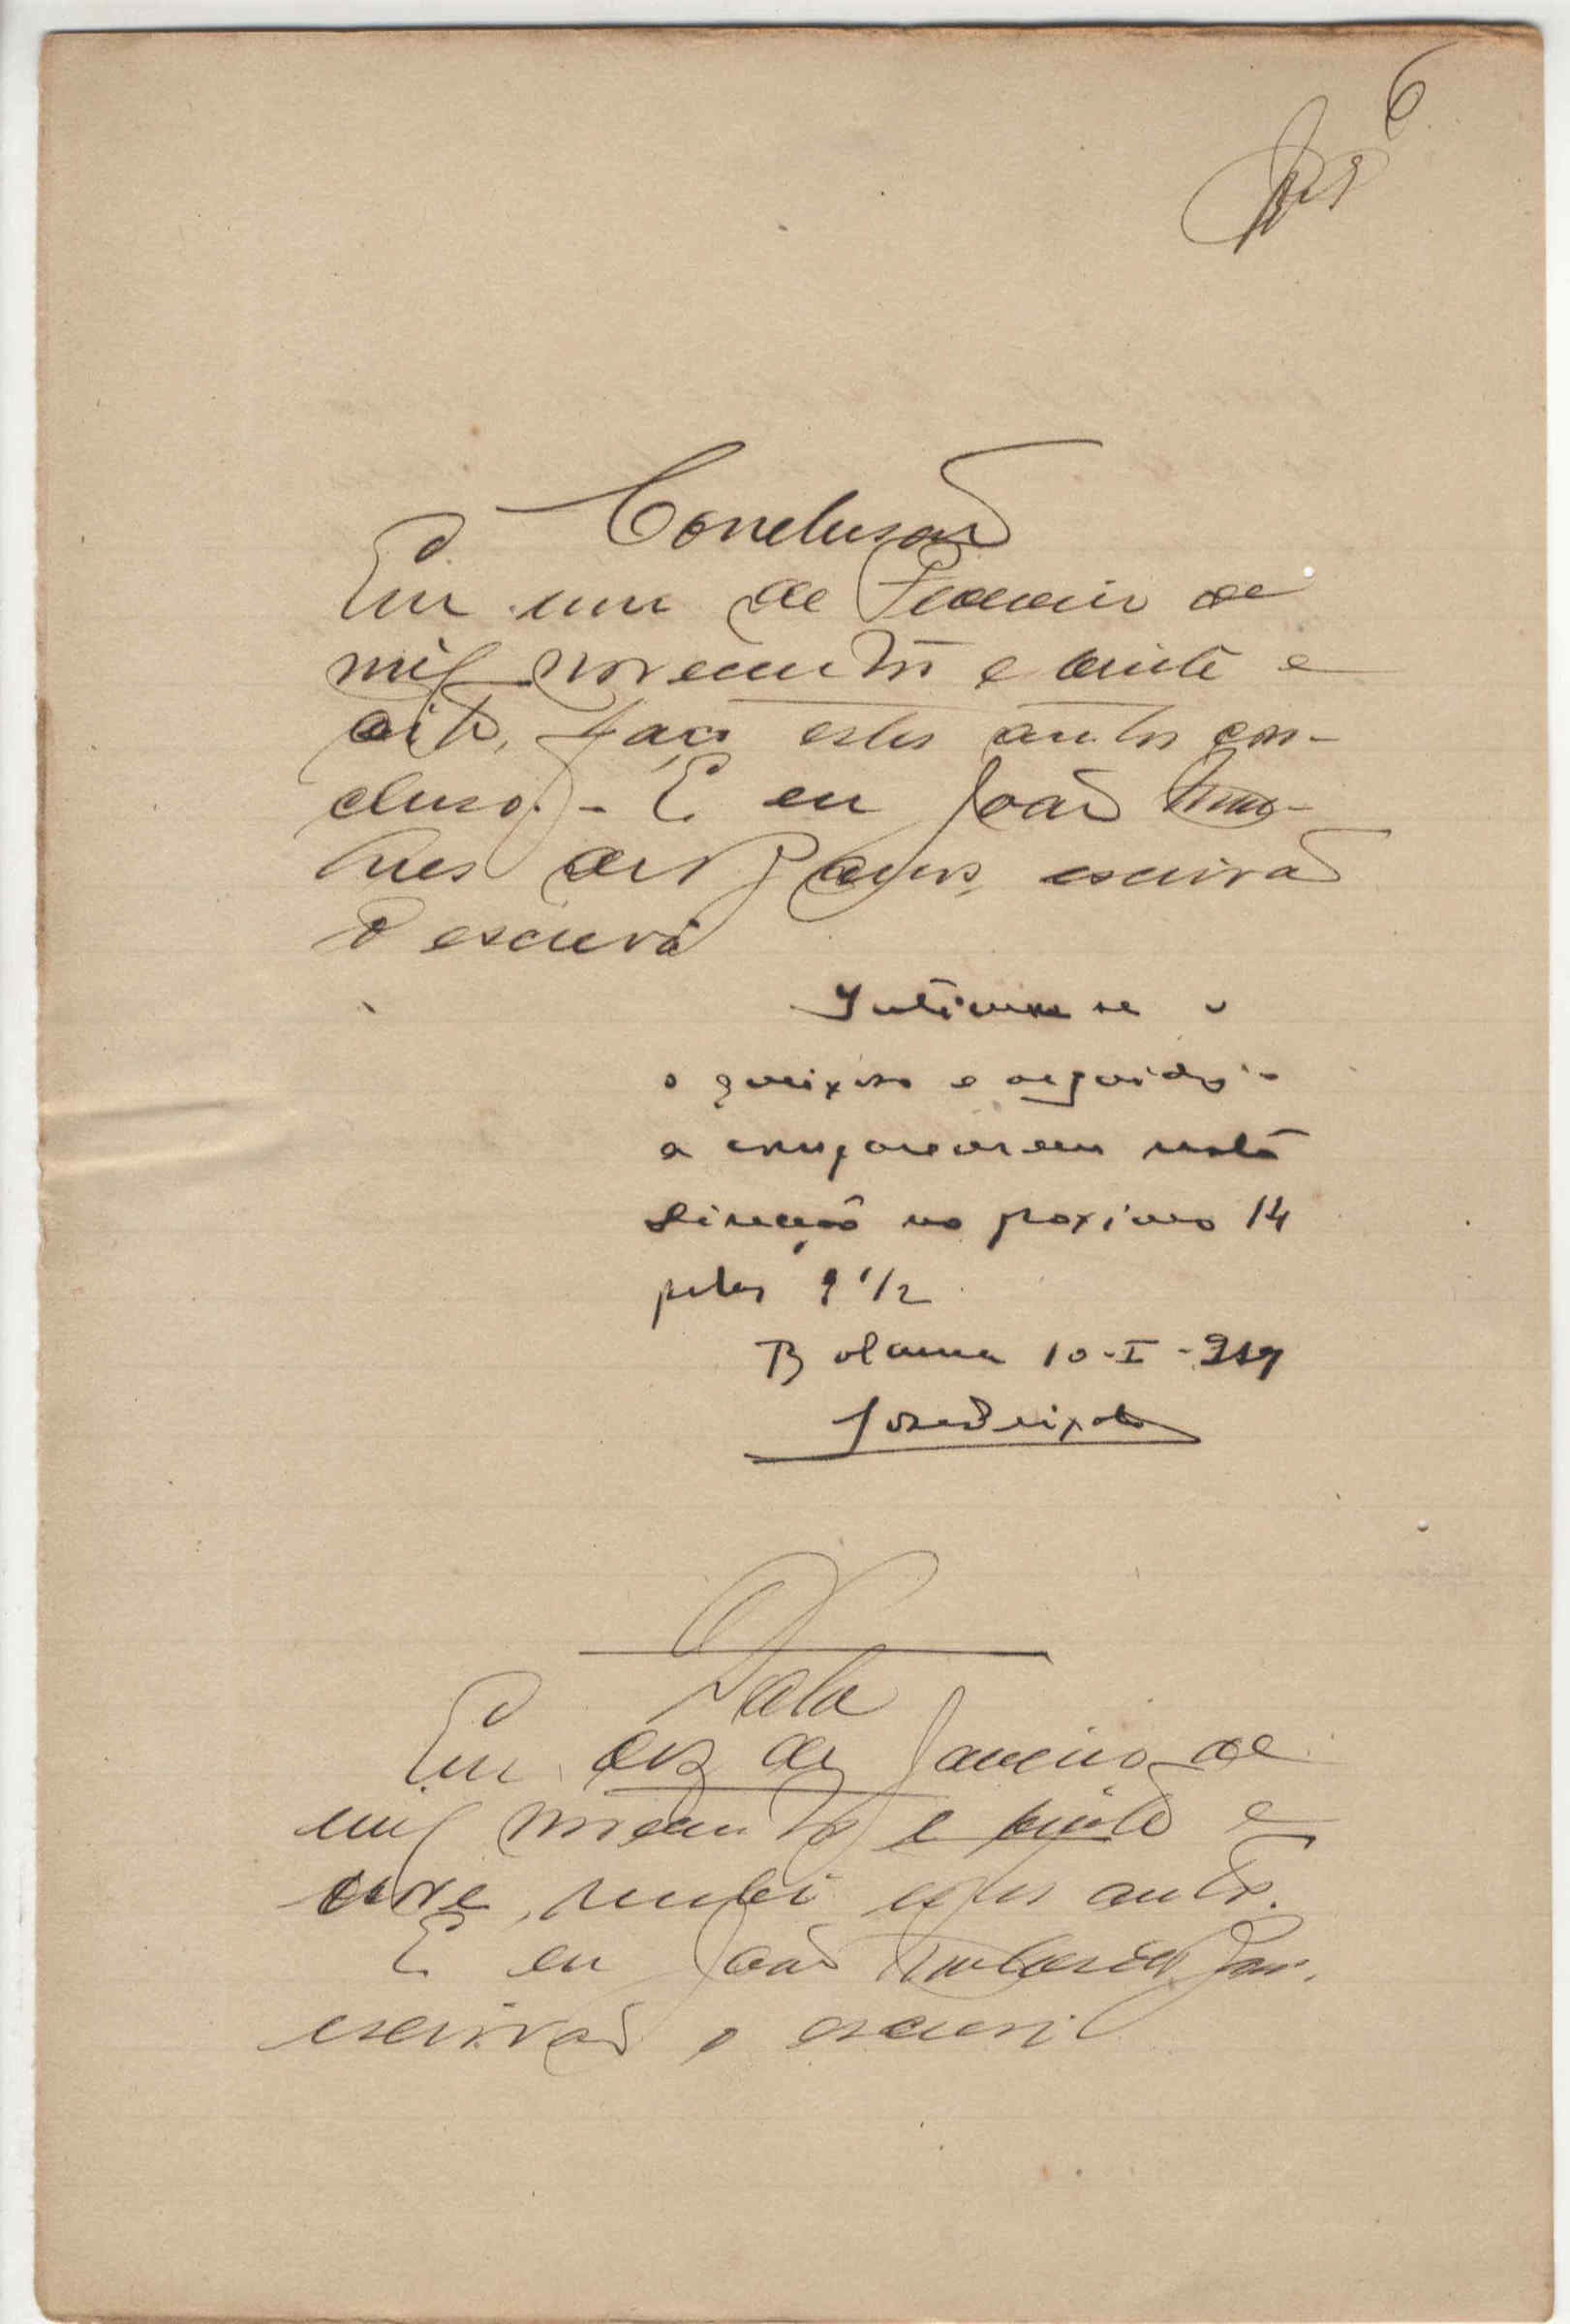 6
Conclusão
Em um de Fevereiro de
mil novecentos e vinte e
oito, faço estes autos con-
clusos. - E eu João
des escrivão
o escrevi
Intime-se o
o queixoso e arguido
a comparecerem nesta
Direcção no proximo 14
pelas 9 1/2
Bolama 10-I-929
José Peixoto
Data
Em dez de Janeiro de
mil novecentos e vinte e
nove, recebi estes autos.
E eu João
escrivão o escrevi